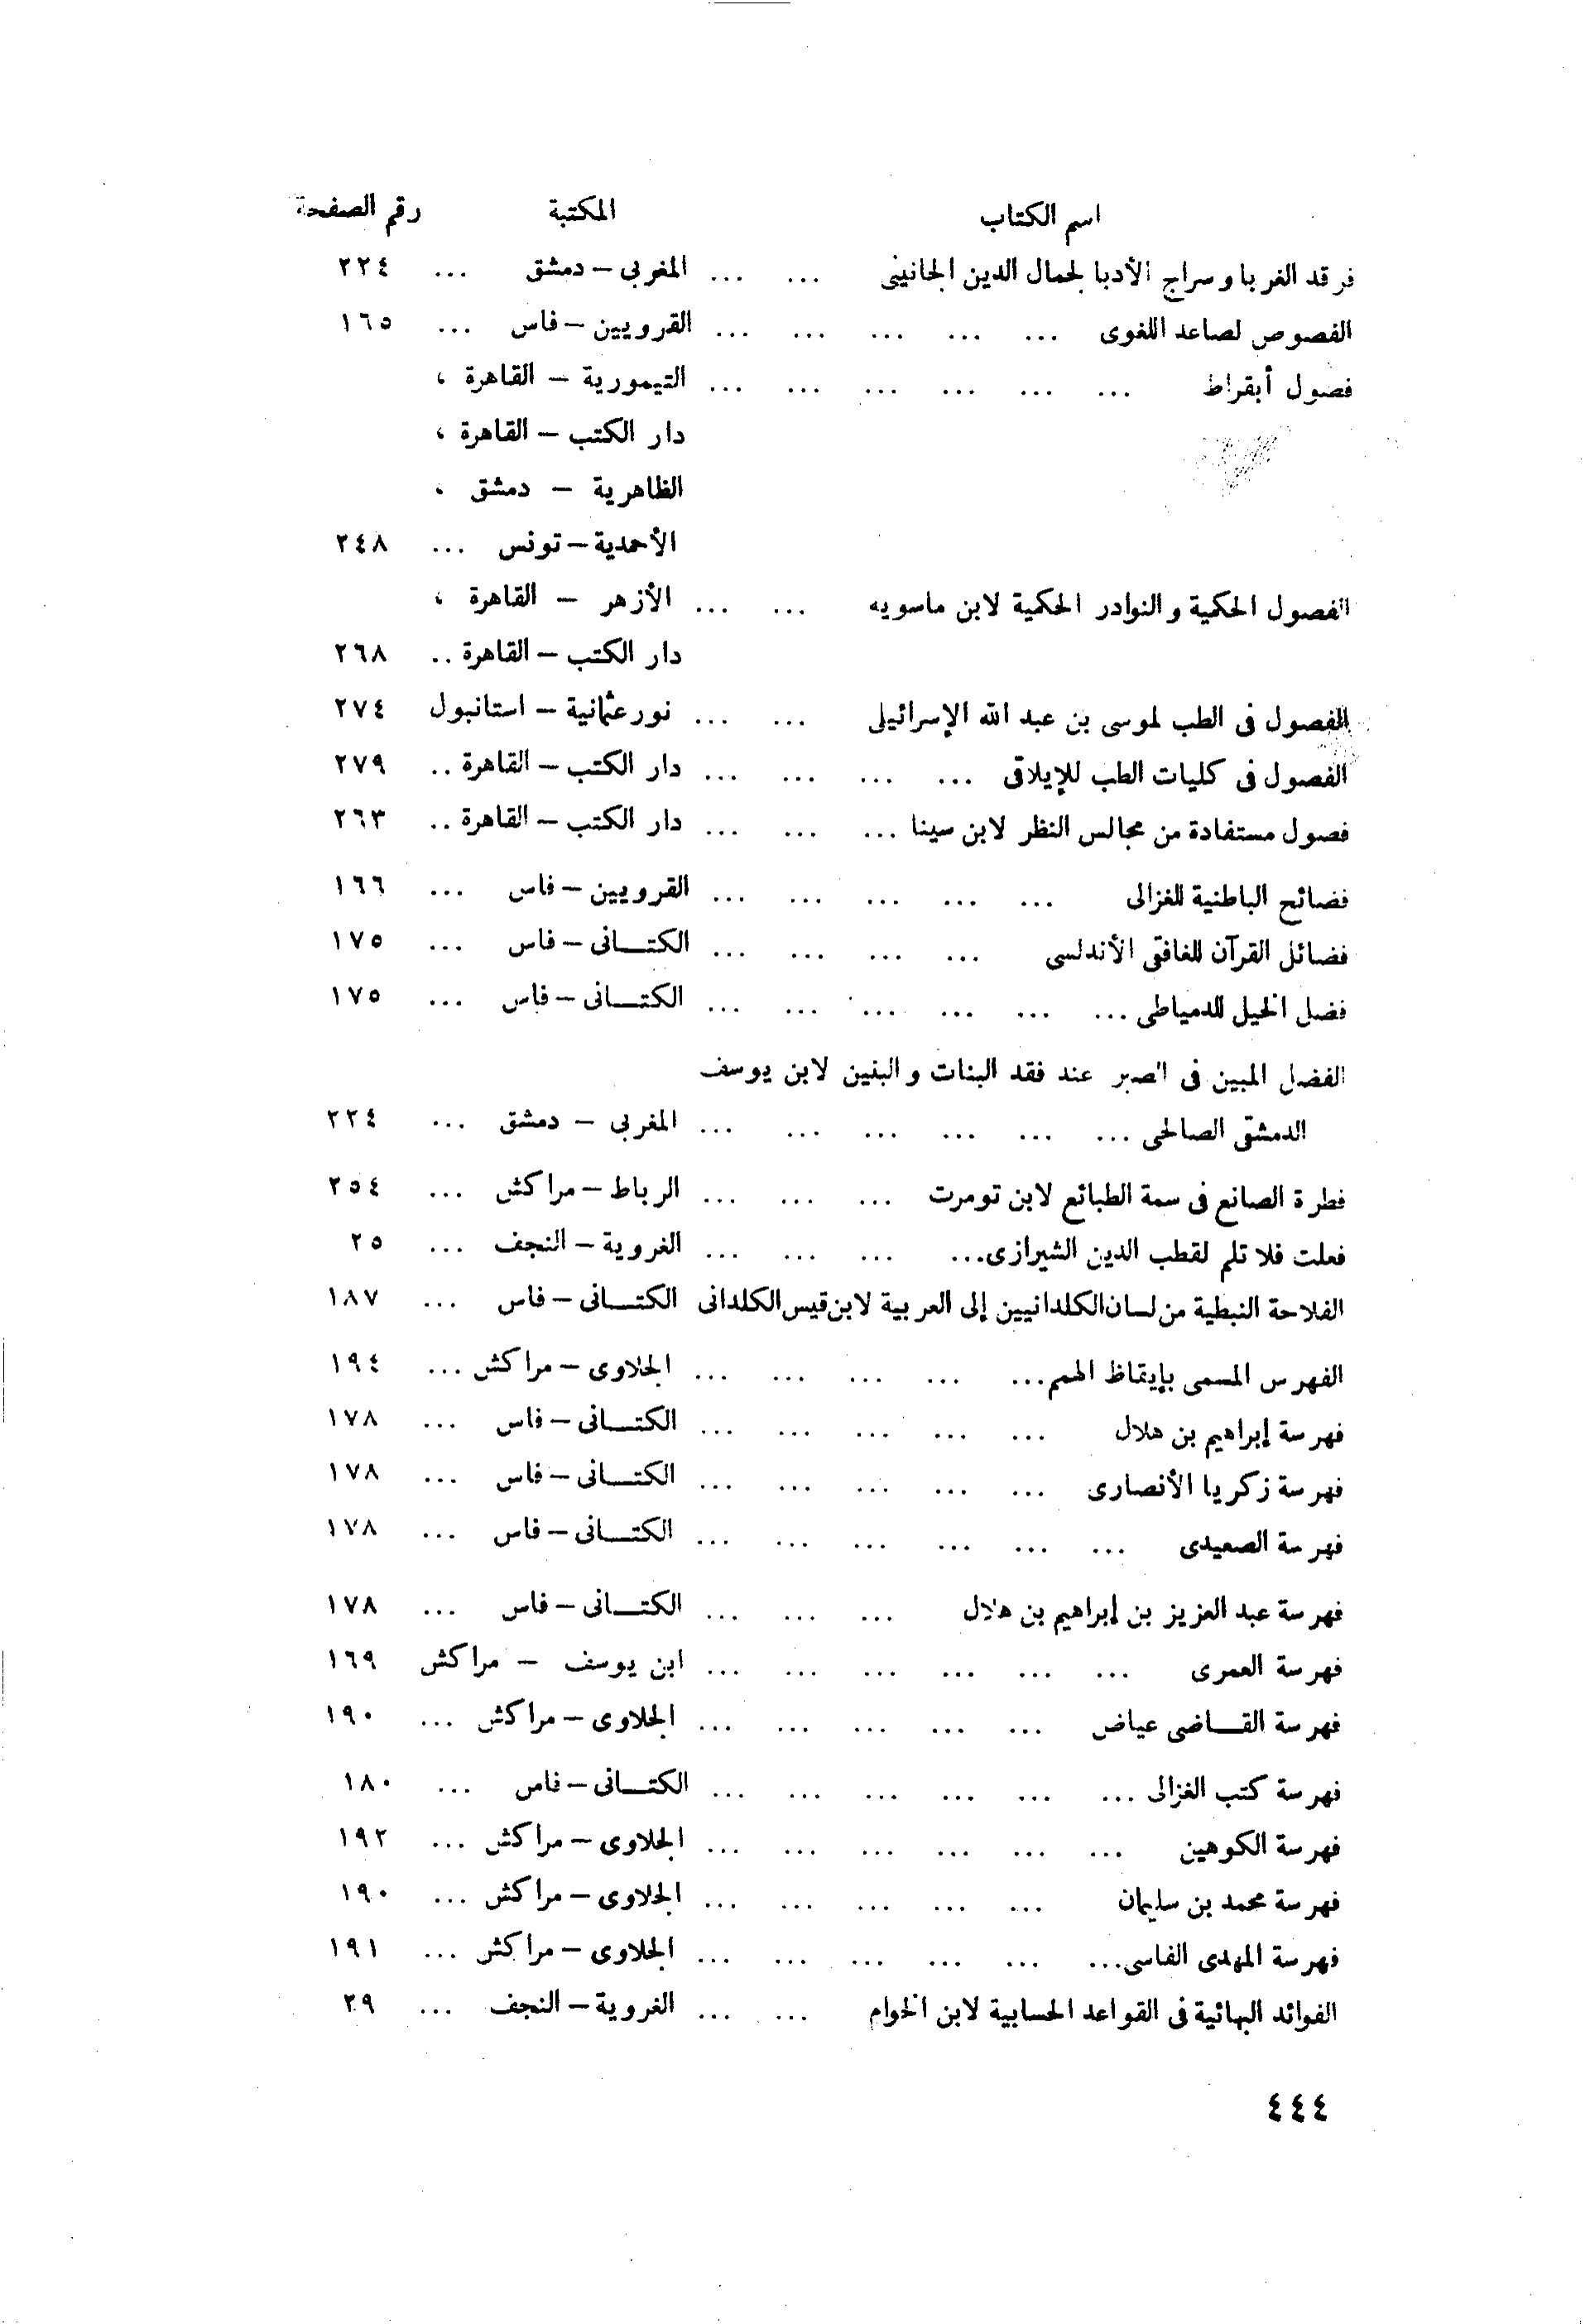 اسم الكتاب المكتبة رقم الصفحة
فرقد الغربا وسراج الأدبا لجمال الدين الجانينى ... ... المغربى – دمشق ... ٢٢٤
الفصوص لصاعد اللغوى ... ... ... ... ... القرويين – فاس ... ١٦٥
فصول أبقراط ... ... ... ... ... ... التيمورية – القاهرة ،
دار الكتب – القاهرة ،
الظاهرية – دمشق ،
الأحمدية – تونس ... ٢٤٨
الفصول الحكمية والنوادر الحكمية لابن ماسويه ... ... الأزهر – القاهرة ،
دار الكتب – القاهرة .. ٢٦٨
الفصول فى الطب لموسى بن عبد الله الإسرائيلى ... ... نور عثمانية – استانبول ٢٧٤
الفصول فى كليات الطب للإيلاقى ... ... ... ... دار الكتب – القاهرة .. ٢٧٩
فصول مستفادة من مجالس النظر لابن سينا ... ... ... دار الكتب – القاهرة .. ٢٦٣
فضائح الباطنية للغزالى ... ... ... ... ... القرويين – فاس ... ١٦٦
فضائل القرآن للغافقى الأندلسى ... ... ... ... الكتــانى – فاس ... ١٧٥
فضل الخيل للدمياطى ... ... ... ... ... ... الكتــانى – فاس ... ١٧٥
الفضل المبين فى الصبر عند فقد البنات والبنين لابن يوسف
الدمشقى الصالحى ... ... ... ... ... ... المغربى – دمشق ... ٢٢٤
فطرة الصانع فى سمة الطبائع لابن تومرت ... ... ... الرباط – مراكش ... ٢٥٤
فعلت فلا تلم لقطب الدين الشيرازى... ... ... ... الغروية – النجف ... ٢٥
الفلاحة النبطية من لسان الكلدانيين إلى العربية لابن قيس الكلدانى الكتــانى – فاس ... ١٨٧
الفهرس المسمى بإيقاظ الهمم... ... ... ... ... الجلاوى – مراكش ... ١٩٤
فهرسة إبراهيم بن هلال ... ... ... ... ... الكتــانى – فاس ... ١٧٨
فهرسة زكريا الأنصارى ... ... ... ... ... الكتــانى – فاس ... ١٧٨
فهرسة الصعيدى ... ... ... ... ... ... الكتــانى – فاس ... ١٧٨
فهرسة عبد العزيز بن إبراهيم بن هلال ... ... ... الكتــانى – فاس ... ١٧٨
فهرسة العمرى ... ... ... ... ... ... ابن يوسف – مراكش ١٦٩
فهرسة القــاضى عياض ... ... ... ... ... الجلاوى – مراكش ... ١٩٠
فهرسة كتب الغزالى ... ... ... ... ... ... الكتــانى – فاس ... ١٨٠
فهرسة الكوهين ... ... ... ... ... ... الجلاوى – مراكش ... ١٩٢
فهرسة محمد بن سليمان ... ... ... ... ... الجلاوى – مراكش ... ١٩٠
فهرسة المهدى الفاسى... ... ... ... ... ... الجلاوى – مراكش ... ١٩١
الفوائد البهائية فى القواعد الحسابية لابن الخوام ... ... الغروية – النجف ... ٢٩
٤٤٤